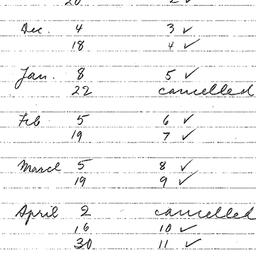 20 2 ✓
Dec. 4 3 ✓
18 4 ✓
Jan. 8 5 ✓
22 cancelled
Feb 5 6 ✓
19 7 ✓
March 5 8 ✓
19 9 ✓
April 2 cancelled
16 10 ✓
30 11 ✓